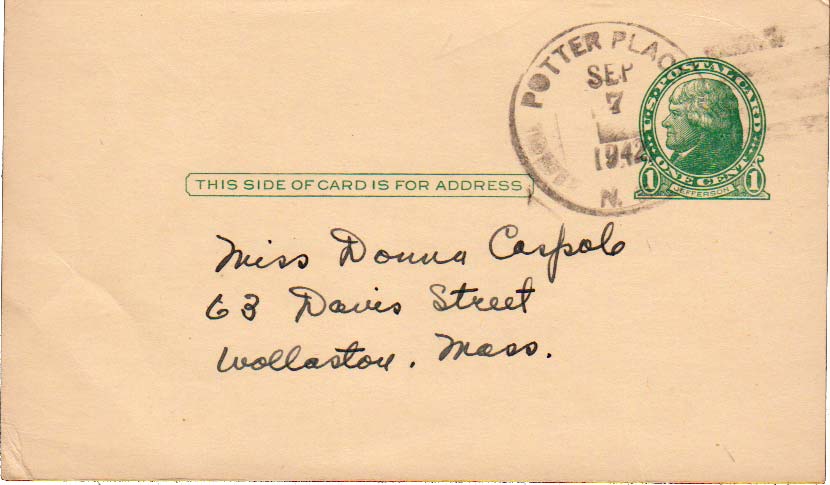 POTTER PLAC
SEP
7
1942
N.
U.S. POSTAL CARD
ONE CENT
1 JEFFERSON 1
THIS SIDE OF CARD IS FOR ADDRESS
Miss Donna
63 Davis Street
Wollaston, Mass.